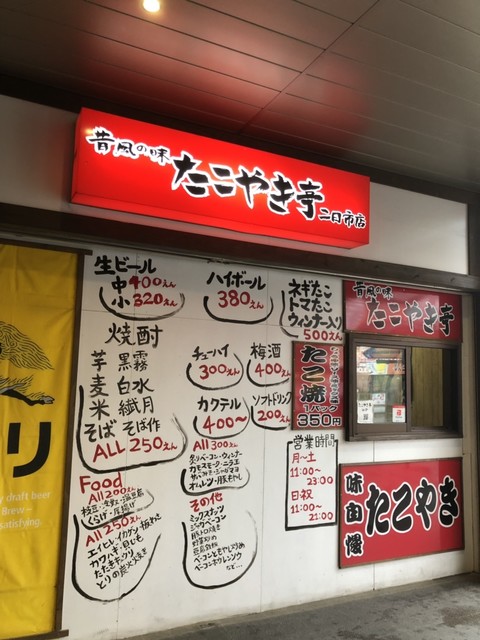 昔風の味 たこやき亭 二日市店
生ビール
中400えん
小320えん
ハイボール
380えん
ネギたこ
トマたこ
ウィンナー入り
500えん
焼酎
芋 黒霧
麦 白水
米 繊月
そば そば作
ALL 250えん
チューハイ
300えん
梅酒
400えん
カクテル
400〜
ソフトドリンク
200えん
たこ焼
1パック
350円
昔風の味
たこやき亭
営業時間
月〜土
11:00〜
23:00
日祝
11:00〜
21:00
味自慢
たこやき
Food
All 200えん
枝豆
All 250えん
エイヒレ
カワハギ
とりの炭火焼き
All 300えん
オムレツ
その他
ミックスナッツ
ベーコンホウレンソウ
など…
リ
draft beer
Brew –
satisfying.